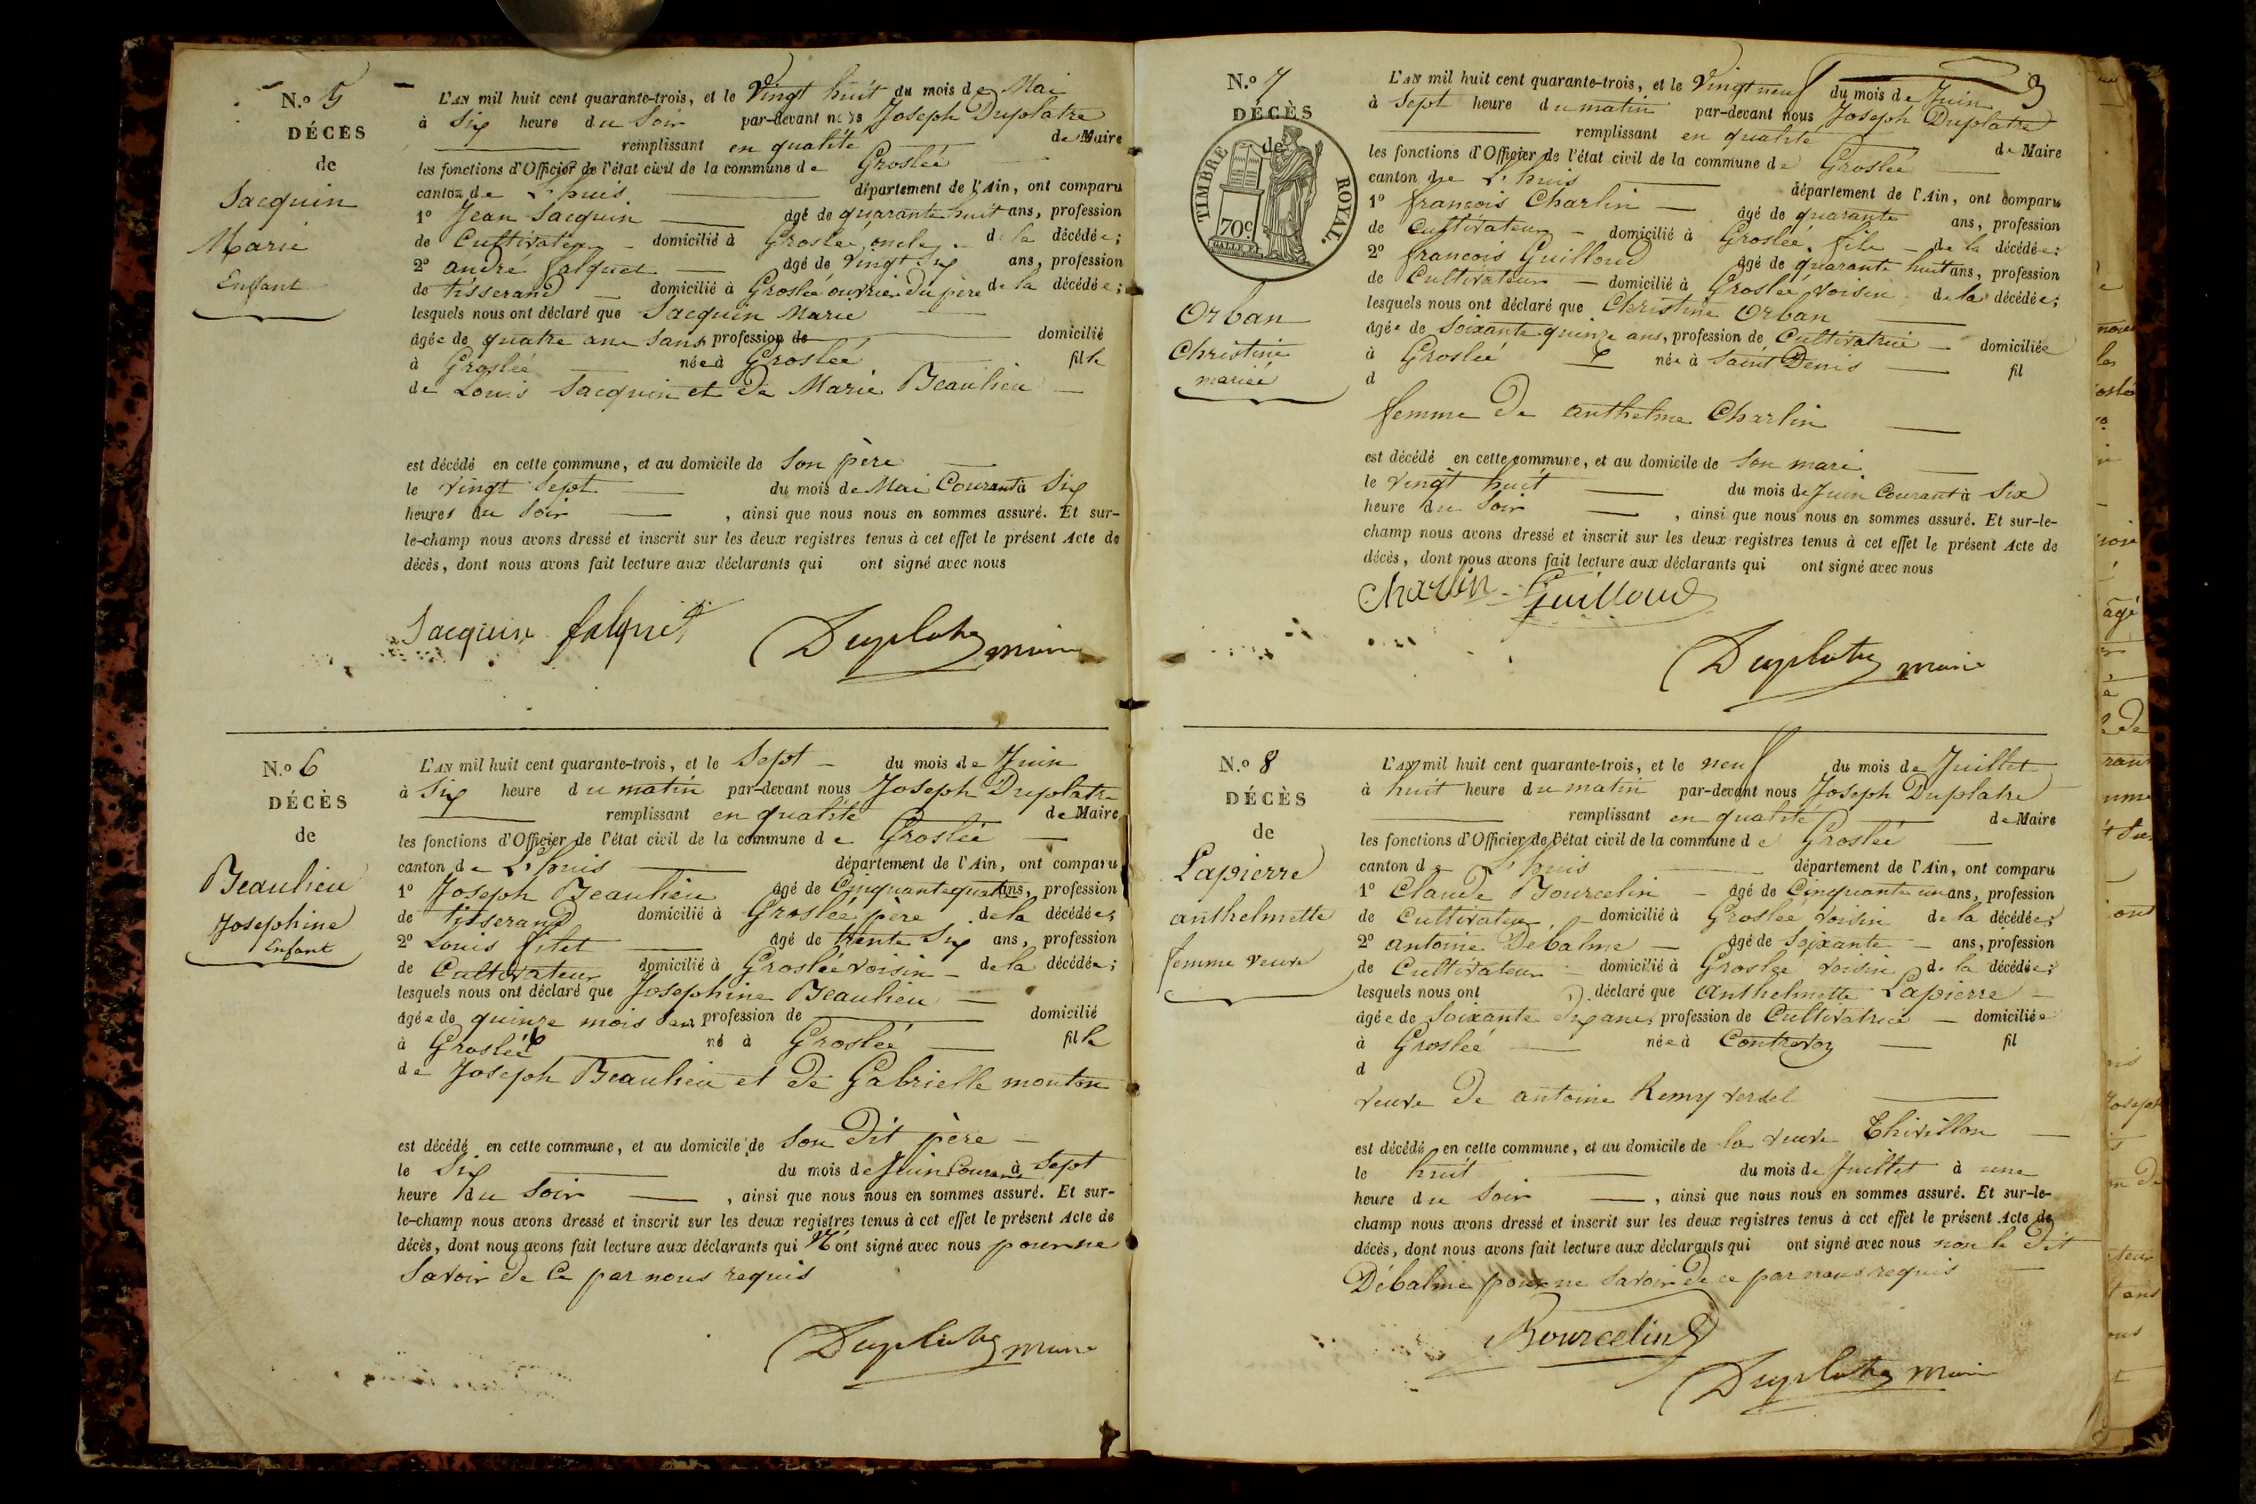 N.º 5
DÉCÈS
de
Jacquin
Marie
Enfant
L'AN mil huit cent quarante-trois, et le Vingt huit du mois de Mai
à Six heure du Soir par-devant nous Joseph Duplatre
remplissant en qualité de Maire
les fonctions d'Officier de l'état civil de la commune de Groslée
canton de L'huis département de l'Ain, ont comparu
1º Jean Jacquin âgé de quarante huit ans, profession
de Cultivateur domicilié à Groslée, oncle de la décédée;
2º andré falquet âgé de vingt Six ans, profession
de tisserand domicilié à Groslée ouvrier du père de la décédée;
lesquels nous ont déclaré que Jacquin Marie
âgée de quatre ans Sans profession de domicilié
à Groslée née à Groslée fille
de Louis Jacquin et de Marie Beaulieu
est décédé en cette commune, et au domicile de Son père
le vingt Sept du mois de Mai Courant à Six
heures du Soir , ainsi que nous nous en sommes assuré. Et sur-
le-champ nous avons dressé et inscrit sur les deux registres tenus à cet effet le présent Acte de
décès, dont nous avons fait lecture aux déclarants qui ont signé avec nous
Jacquin falquet Duplatre maire
N.º 6
DÉCÈS
de
Beaulieu
Josephine
Enfant
L'AN mil huit cent quarante-trois, et le Sept du mois de Juin
à Six heure du matin par-devant nous Joseph Duplatre
remplissant en qualité de Maire
les fonctions d'Officier de l'état civil de la commune de Groslée
canton de L'huis département de l'Ain, ont comparu
1º Joseph Beaulieu âgé de Cinquante quatre ans, profession
de tisserand domicilié à Groslée père de la décédée;
2º Louis fitet âgé de trente Six ans, profession
de Cultivateur domicilié à Groslée voisin de la décédée;
lesquels nous ont déclaré que Josephine Beaulieu
âgée de quinze mois Sans profession de domicilié
à Groslée né à Groslée fille
de Joseph Beaulieu et de Gabrielle mouton
est décédé en cette commune, et au domicile de Son dit père
le Six du mois de Juin Courant à Sept
heure du Soir , ainsi que nous nous en sommes assuré. Et sur-
le-champ nous avons dressé et inscrit sur les deux registres tenus à cet effet le présent Acte de
décès, dont nous avons fait lecture aux déclarants qui N'ont signé avec nous pour ne
Savoir de Ce par nous requis
Duplatre maire
N.º 7
DÉCÈS
de
TIMBRE ROYAL.
70c
Orban
Christine
mariée
L'AN mil huit cent quarante-trois, et le Vingt neuf du mois de Juin
à Sept heure du matin par-devant nous Joseph Duplatre
remplissant en qualité de Maire
les fonctions d'Officier de l'état civil de la commune de Groslée
canton de L'huis département de l'Ain, ont comparu
1º francois Charlin âgé de quarante ans, profession
de Cultivateur domicilié à Groslée, fils de la décédée;
2º francois Guilloud âgé de quarante huit ans, profession
de Cultivateur domicilié à Groslée voisin de la décédée;
lesquels nous ont déclaré que Christine Orban
âgée de Soixante quinze ans, profession de Cultivatrice domiciliée
à Groslée née à Saint Denis fil
d
femme de anthelme Charlin
est décédé en cette commune, et au domicile de Son mari
le vingt huit du mois de Juin Courant à Six
heure du Soir , ainsi que nous nous en sommes assuré. Et sur-le-
champ nous avons dressé et inscrit sur les deux registres tenus à cet effet le présent Acte de
décès, dont nous avons fait lecture aux déclarants qui ont signé avec nous
Charlin Guilloud
Duplatre maire
N.º 8
DÉCÈS
de
Lapierre
anthelmette
femme veuve
L'AN mil huit cent quarante-trois, et le neuf du mois de Juillet
à huit heure du matin par-devant nous Joseph Duplatre
remplissant en qualité de Maire
les fonctions d'Officier de l'état civil de la commune de Groslée
canton de L'huis département de l'Ain, ont comparu
1º Claude Bourcelin âgé de Cinquante un ans, profession
de Cultivateur domicilié à Groslée voisin de la décédée;
2º antoine Débalme âgé de Soixante ans, profession
de Cultivateur domicilié à Groslée voisin de la décédée;
lesquels nous ont déclaré que anthelmette Lapierre
âgée de Soixante Six ans, profession de Cultivatrice domiciliée
à Groslée née à Contrevoz fil
d
veuve de antoine Remy verdel
est décédé en cette commune, et au domicile de la veuve Thivillon
le huit du mois de Juillet à une
heure du Soir , ainsi que nous nous en sommes assuré. Et sur-le-
champ nous avons dressé et inscrit sur les deux registres tenus à cet effet le présent Acte de
décès, dont nous avons fait lecture aux déclarants qui ont signé avec nous non le dit
Débalme pour ne Savoir de ce par nous requis
Bourcelin
Duplatre maire